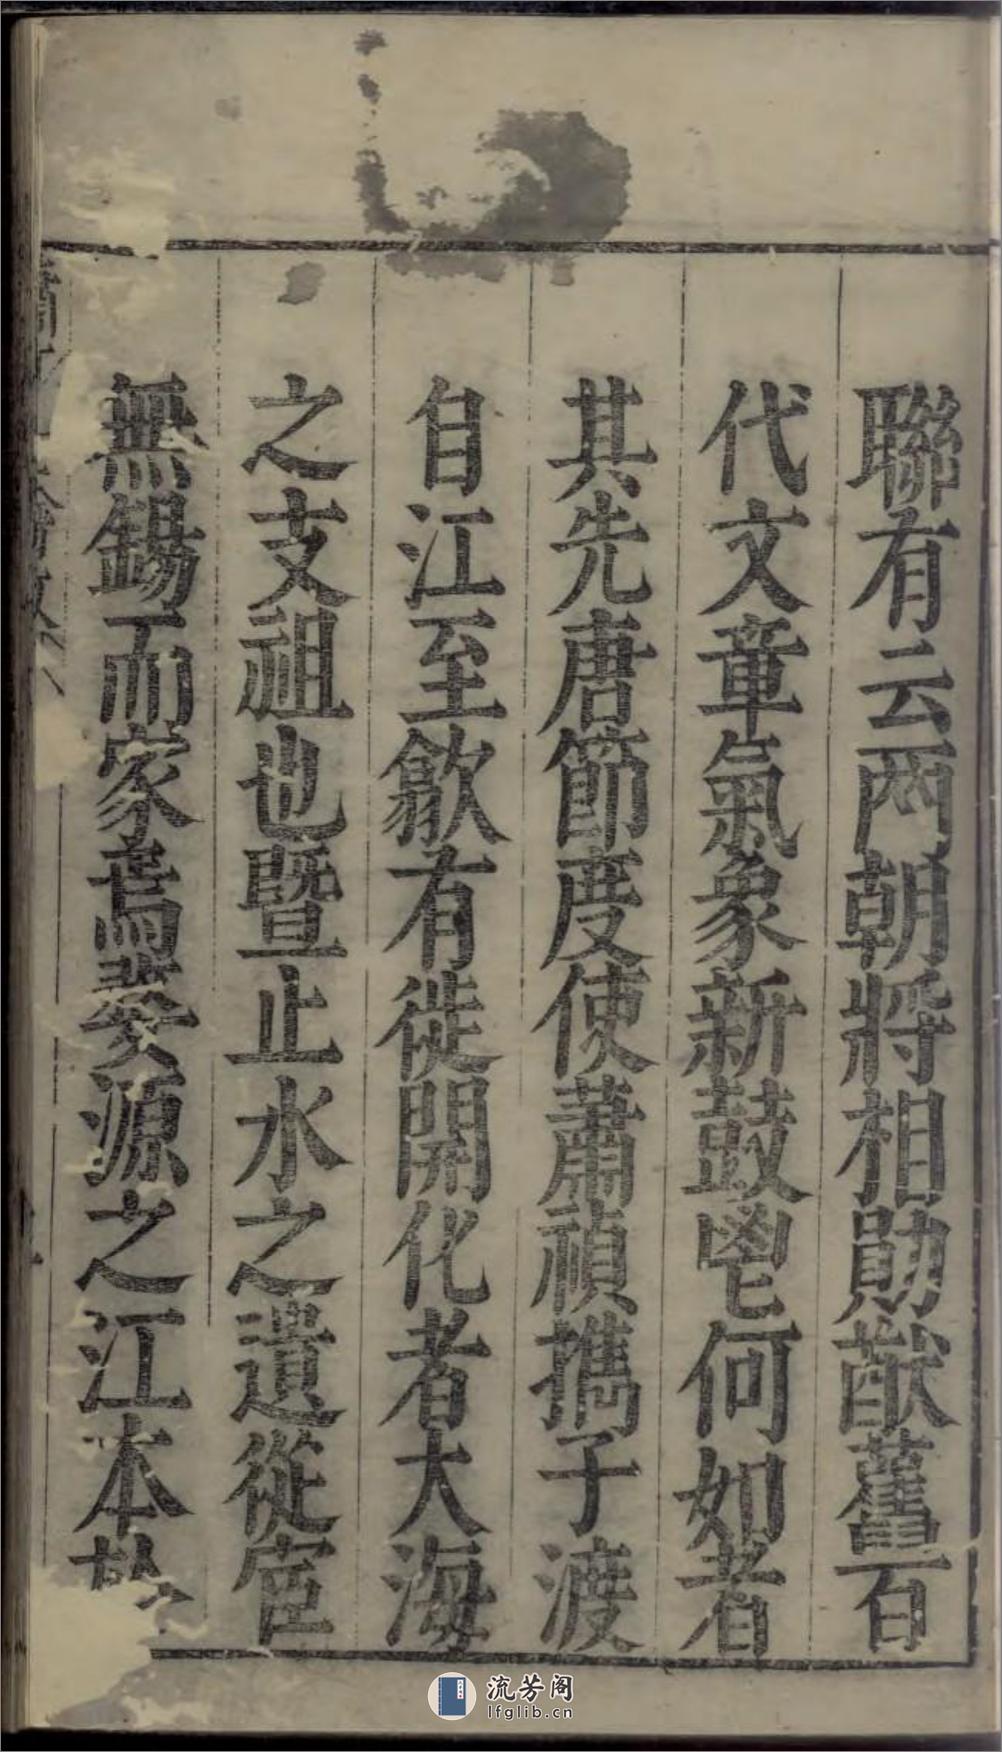 聯有云兩朝將相勛猷舊百
代文章氣象新鼓鬯何如者
其先唐節度使蕭禎攜子渡
自江至歙有徙開化者大海
之支祖也暨止水之遺從宦
無錫而家焉婺源之江本
流芳阁
lfglib.cn